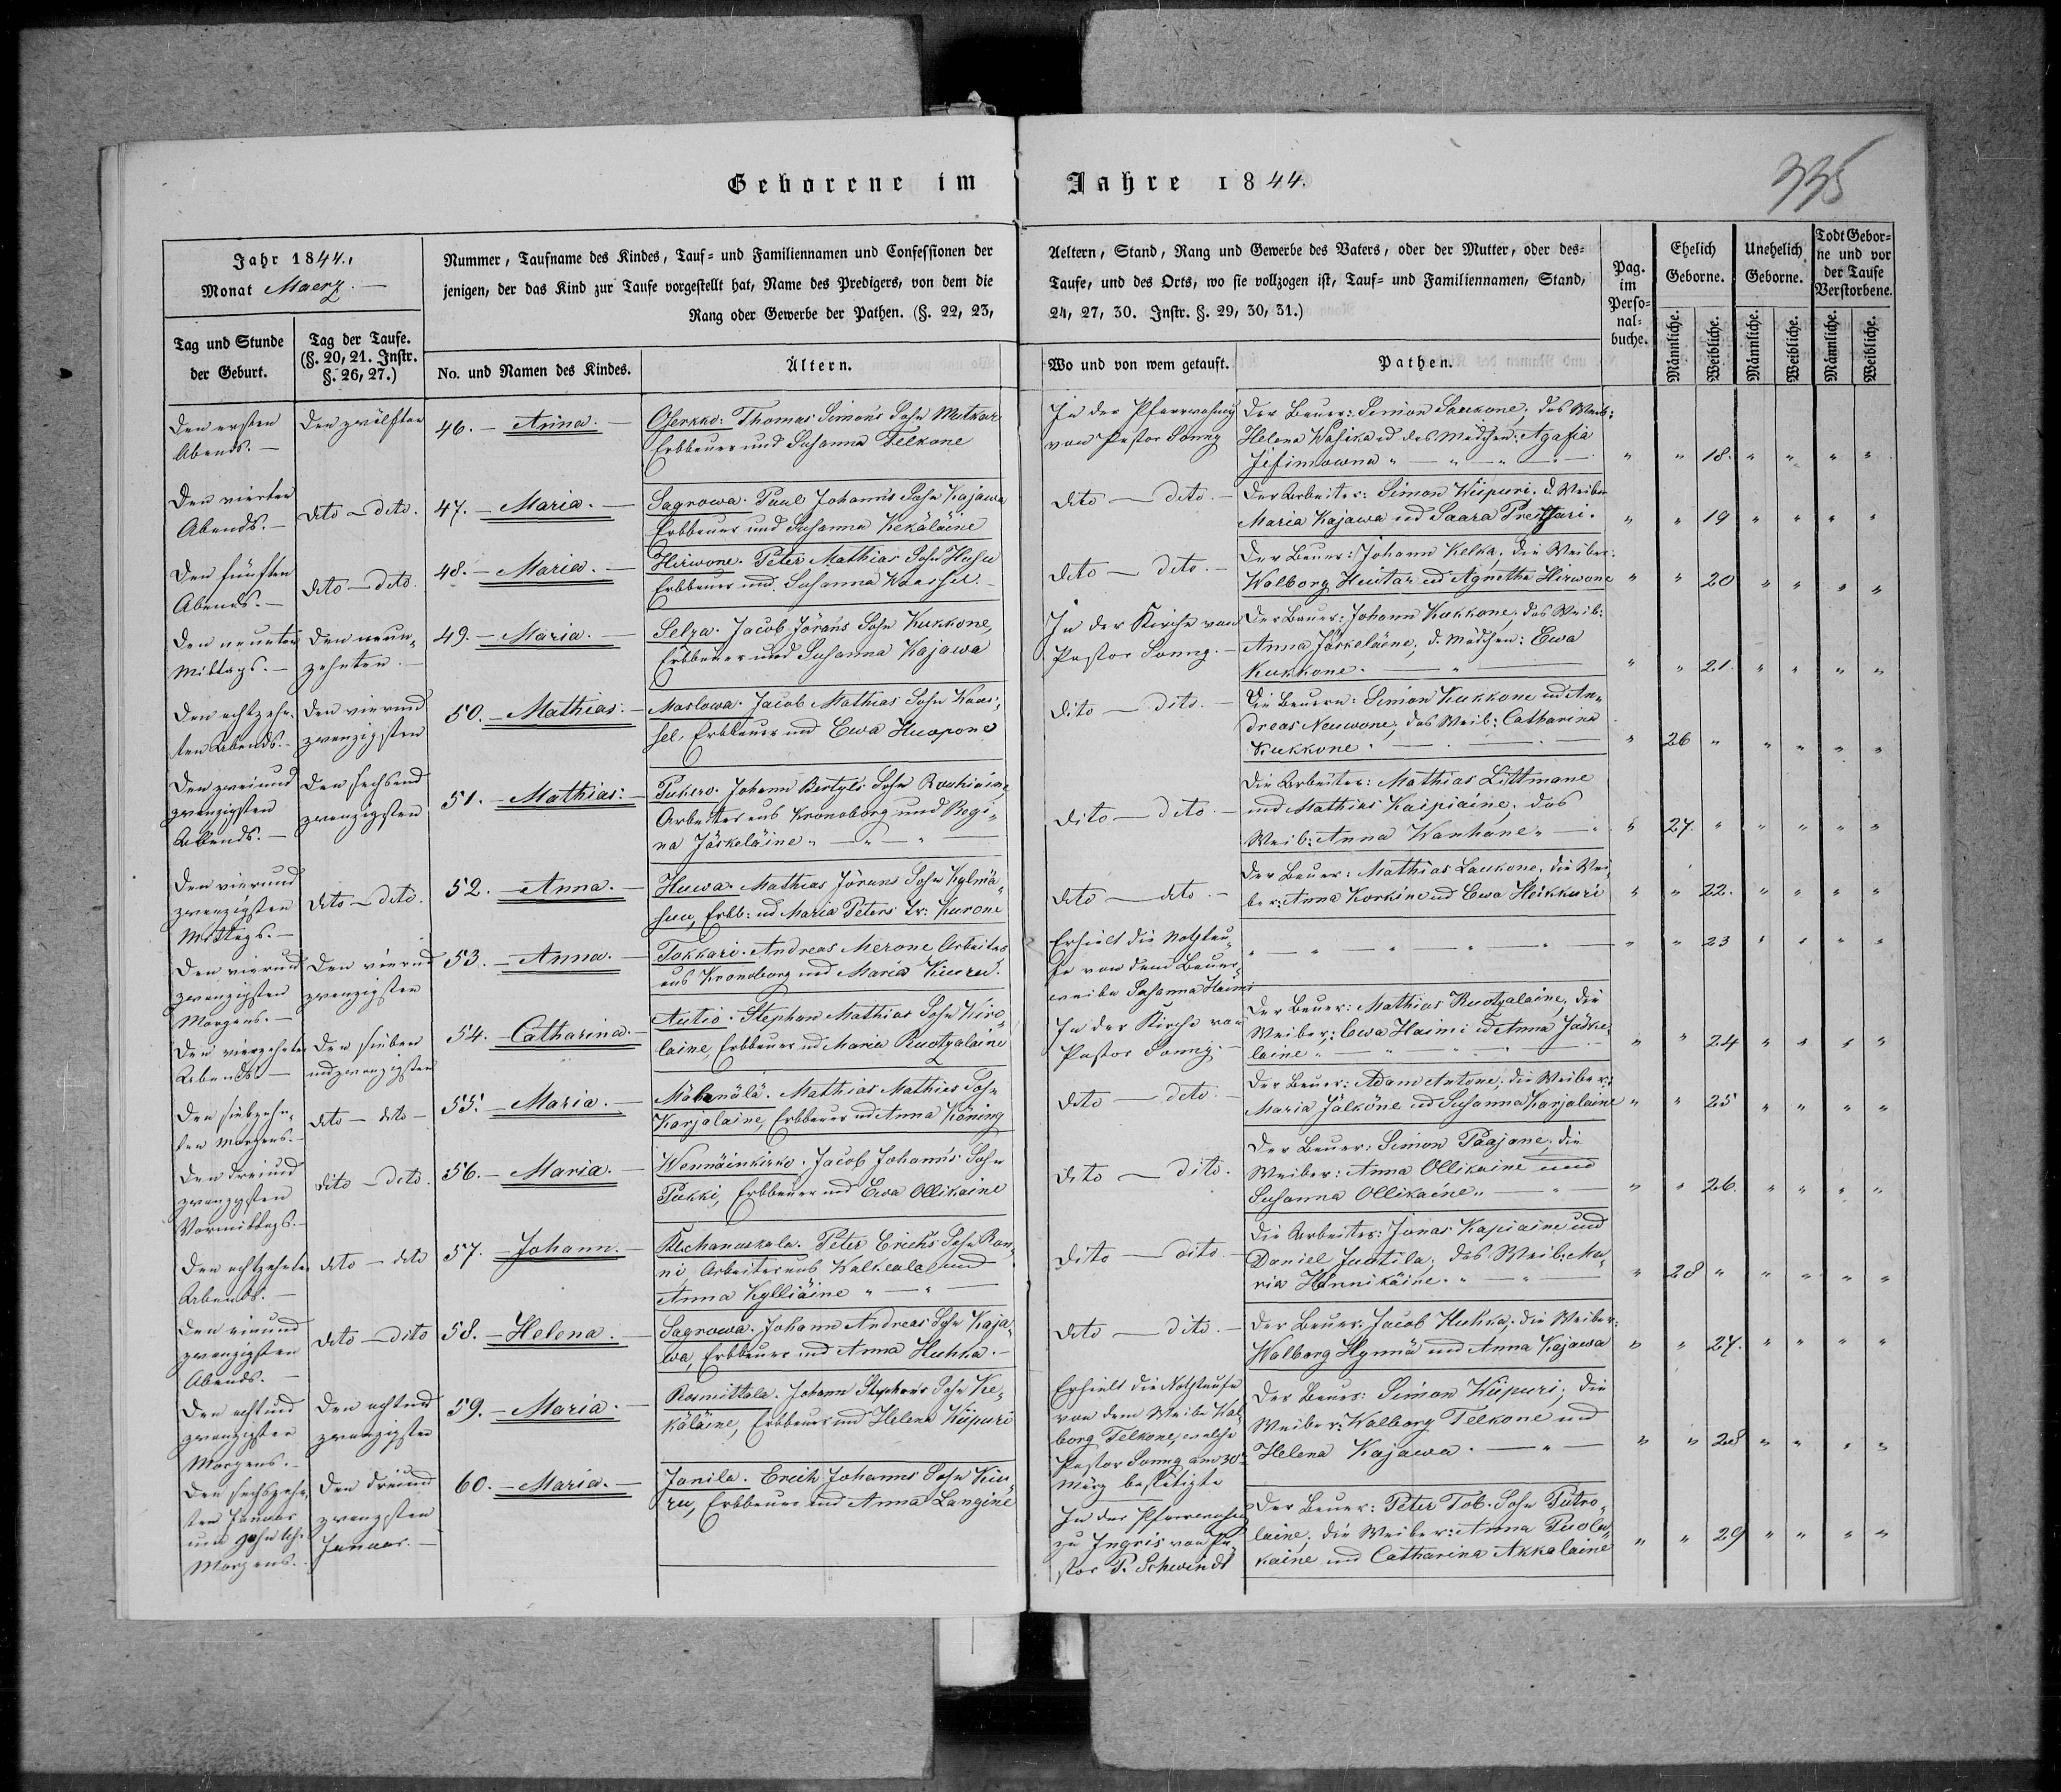 Geborene im Jahre 1844.
335
Jahr 1844.
Monat Maerz.
Nummer, Taufname des Kindes, Tauf- und Familiennamen und Confessionen der
jenigen, der das Kind zur Taufe vorgestellt hat, Name des Predigers, von dem die
Rang oder Gewerbe der Pathen. (§. 22, 23,
Aeltern, Stand, Rang und Gewerbe des Vaters, oder der Mutter, oder des-
Taufe, und des Orts, wo sie vollzogen ist, Tauf- und Familiennamen, Stand,
24, 27, 30. Instr. §. 29, 30, 31.)
Pag. im Perso-nal-buche.
Ehelich Geborne.
Unehelich Geborne.
Todt Gebor-ne und vor der Taufe Verstorbene.
Tag und Stunde der Geburt.
Tag der Taufe. (§. 20, 21. Instr. §. 26, 27.)
No. und Namen des Kindes.
Ältern.
Wo und von wem getauft.
Pathen.
Männliche. Weibliche. Männliche. Weibliche. Männliche. Weibliche.
Den ersten
Abends. —
Den zwölften
46. — Anna. —
Oserkko: Thomas Simons Sohn Mutkar
Erbbauer und Susanna Telkone
In der Pfarrwohnung
von Pastor Sonny
Der Bauer: Simon Saukone, das Weib:
Helena Wasika ud das Mädchen: Agafia
Jefimowna " — " — " —
" " 18. " " " "
Den vierten
Abends. —
dito — dito.
47. — Maria. —
Sagrowa. Paul Johann's Sohn Kajawa
Erbbauer und Susanna Kekäläine
dito — dito. —
Der Arbeiter: Simon Wiipuri, d. Weiber
Maria Kajawa ud Saara Prettari.
" " 19 " " " "
Den fünften
Abends. —
dito — dito.
48. — Maria. —
Hirwone. Peter Mathias Sohn Husu
Erbbauer und Susanna Waassel. —
dito — dito. —
Der Bauer: Johann Kelka, die Weiber:
Walborg Huitar ud Agnetha Hirwone
" " 20 " " " "
Den neunten
Mittags. —
Den neun-
zehnten. —
49. — Maria. —
Selza. Jacob Jörans Sohn Kukkone,
Erbbauer und Susanna Kajawa
In der Kirche von
Pastor Sonny. —
Der Bauer: Johann Kukkone, das Weib:
Anna Jäskeläine, d. Mädchen: Ewa
Kukkone. — "
" " 21. " " " "
Den achtzehn-
ten Abends. —
Den vierund
zwanzigsten
50. — Mathias. —
Maslowa. Jacob Mathias Sohn Kaas-
sel, Erbbauer und Ewa Huopone
dito — dito. —
Die Bauern: Simon Kukkone ud An-
dreas Neuwone, das Weib: Catharina
Kukkone. — . —
" 26 " " " " "
Den zweiund
zwanzigsten
Abends. —
Den sechsund
zwanzigsten
51. — Mathias. —
Pukero. Johann Bertyls Sohn Rouhiaine
Arbeiter aus Kronoborg und Regi-
na Jäskeläine " — " — "
dito — dito. —
Die Arbeiter: Mathias Littmane
und Mathias Kaipiaine, das
Weib: Anna Wanhane " —
" 27. " " " " "
Den vierund
zwanzigsten
Mittags. —
dito — dito.
52. — Anna. —
Huwa. Mathias Jörans Sohn Kylmä-
suu, Erbb: ud Maria Peters Tr: Kurone
dito — dito. —
Der Bauer: Mathias Laukone, die Wei-
ber: Anna Korkine ud Ewa Heikkuri
" " 22. " " " "
Den vierund
zwanzigsten
Morgens. —
Den vierund
zwanzigsten
53. — Anna. —
Tokkari. Andreas Merone Arbeiter
aus Kronoborg und Maria Kiuru.
Erhielt die Nothtau-
fe von dem Bauer-
weibe Susanna Haimi
" — " — " — " — " —
" " 23 " " " "
Den vierzehnten
Abends. —
Den sieben
undzwanzigsten
54. — Catharina. —
Autio. Stephan Mathias Sohn Kiro-
laine, Erbbauer ud Maria Ruotzalaine
In der Kirche von
Pastor Sonny. —
Der Bauer: Mathias Ruotzalaine, die
Weiber: Ewa Haimi ud Anna Jäske-
laine " — "
" " 24 " " " "
Den siebzehn-
ten Morgens. —
dito — dito —
55. — Maria. —
Mathias Mathias Sohn
Karjalaine, Erbbauer ud Anna Köning
dito — dito. —
Der Bauer: Adam Antone, die Weiber:
Maria Jälköne ud Susanna Karjalaine
" " 25 " " " "
Den dreiund
zwanzigsten
Vormittags. —
dito — dito.
56. — Maria. —
Wennäinkirko. Jacob Johann's Sohn
Pukki, Erbbauer und Ewa Ollikaine
dito — dito.
Der Bauer: Simon Paajane, die
Weiber: Anna Ollikaine und
Susanna Ollikaine " — " —
" " 26. " " " "
Den achtzehnten
Abends. —
dito — dito
57. — Johann. —
Peter Erichs Sohn Ron-
ni, Arbeiter aus Walkeala und
Anna Kylliäine " — " —
dito — dito. —
Die Arbeiter: Jonas Kapiaine und
Daniel Juntila, das Weib: Ma-
ria Hännikäine. " — " —
" 28 " " " " "
Den einund
zwanzigsten
Abends. —
dito — dito
58. — Helena. —
Sagrowa. Johann Andreas Sohn Kaja-
wa, Erbbauer und Anna Huhka. —
dito — dito. —
Der Bauer: Jacob Huhka, die Weiber:
Walborg Hynnä und Anna Kajawa
" " 27. " " " "
Den achtund
zwanzigsten
Morgens. —
Den achtund
zwanzigsten
59. — Maria. —
Rosmittala. Johann Stephans Sohn Ke-
käläine, Erbbauer und Helena Kiipuri
Erhielt die Nothtaufe
von dem Weibe Wal-
borg Telkone, welche
Pastor Sonny am 30
März bestätigte
Der Bauer: Simon Kiipuri, die
Weiber: Walborg Telkone und
Helena Kajawa. — " —
" " 28 " " " "
Den sechszehn-
ten Januar
um zehn Uhr
Morgens. —
Den dreiund
zwanzigsten
Januar. —
60. — Maria. —
Janila. Erich Johanns Sohn Kiu-
ru, Erbbauer und Anna Langine
In der
zu Ingris von Pa-
stor P. Schwindt
Der Bauer: Peter Tob. Sohn Putro-
laine, die Weiber: Anna Puola-
kaine und Catharina Akkalaine
" " 29 " " " "